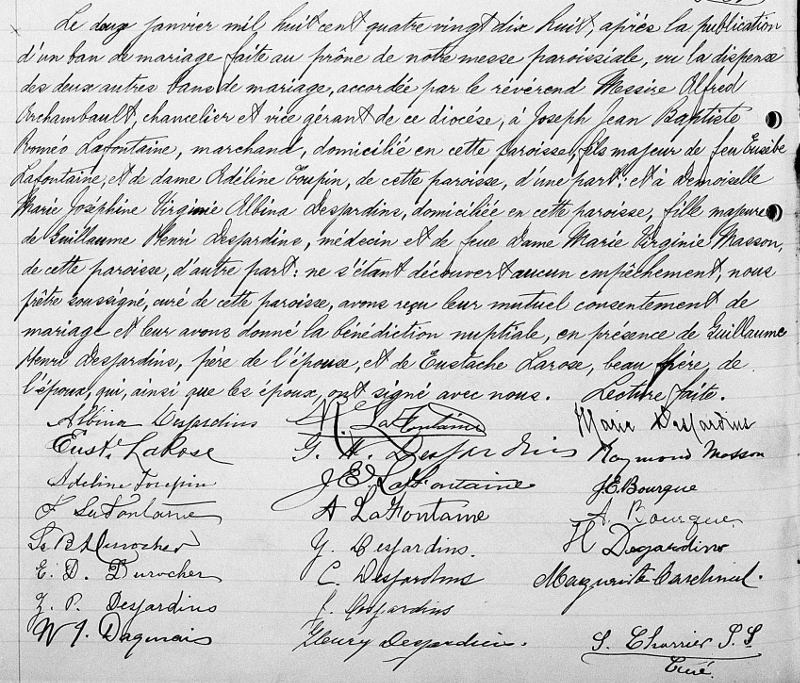 Le deux janvier mil huit cent quatre vingt dix huit, après la publication
d'un ban de mariage faite au prône de notre messe paroissiale, vu la dispense
des deux autres bans de mariage, accordée par le révérend Messire Alfred
Archambault, chancelier et vice gérant de ce diocèse, à Joseph Jean Baptiste
Roméo Lafontaine, marchand, domicilié en cette paroisse, fils majeur de feu Eusèbe
Lafontaine, et de dame Adéline Toupin, de cette paroisse, d'une part: et à demoiselle
Marie Joséphine Virginie Albina Desjardins, domiciliée en cette paroisse, fille majeure
de Guillaume Henri Desjardins, médecin et de feue Dame Marie Virginie Masson,
de cette paroisse, d'autre part: ne s'étant découvert aucun empêchement, nous
prêtre soussigné, curé de cette paroisse, avons reçu leur mutuel consentement de
mariage et leur avons donné la bénédiction nuptiale, en présence de Guillaume
Henri Desjardins, père de l'épouse, et de Eustache Larose, beau frère de
l'époux, qui, ainsi que les époux, ont signé avec nous. Lecture faite.
Albina Desjardins R. LaFontaine Marie Desjardins
Eust. LaRose G. H. Desjardins Raymond Masson
Adeline Toupin J. E. LaFontaine J.E. Bourque
F LaFontaine A LaFontaine A. Bourque
Durocher Y. Desjardins. H Desjardins
E. D. Durocher C. Desjardins Marguerite
Z. P. Desjardins Desjardins
Dagenais Henry Desjardins. S. Charrier P.S.
Curé.